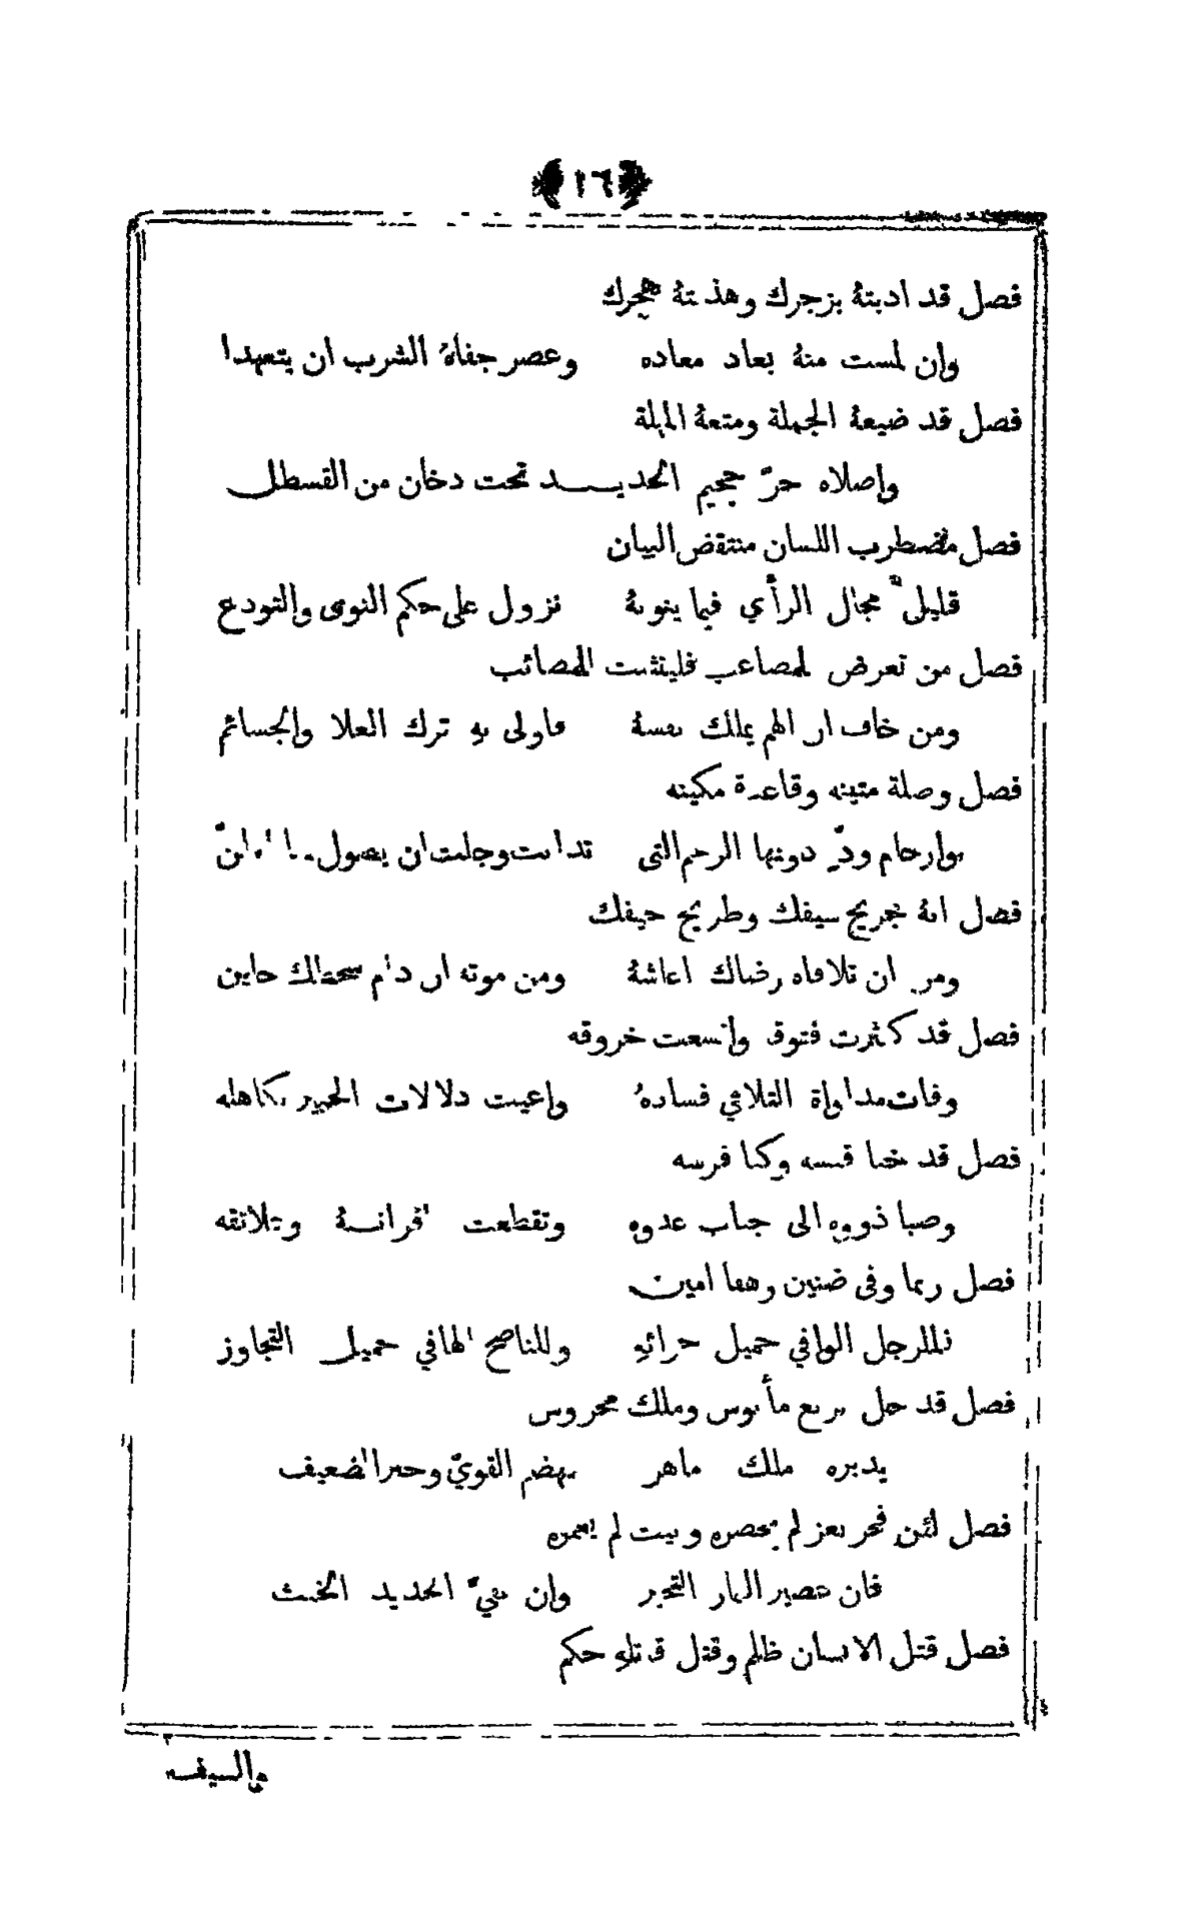 ﴿١٦﴾
فصل قد ادبتهُ بزجرك وهذبتهُ بهجرك
وإن لست منهُ بعاد معاده وعصر جفاهُ الشرب ان يتعهدا
فصل قد ضيعهُ الجملة ومتعهُ المهلة
وإصلاه حرّ جحيم الحديد تحت دخان من القسطل
فصل مضطرب اللسان منتقض البيان
قليل مجال الرأي فيما ينوبهُ نزول على حكم النوى والتودع
فصل من تعرض للمصاعب فليثبت للمصائب
ومن خاف ان الهم يملك نفسهُ فاولى به ترك العلا والجسائم
فصل وصلة متينه وقاعدة مكينه
وارحام ودّ دونها الرحم التي تدانت وجلت ان يصول
فصل انهُ جريح سيفك وطريح حيفك
ومن ان تلافاه رضاك اعاشهُ ومن موته ان دام سخطك حاين
فصل قد كثرت فتوقه وإتسعت خروقه
وفات مداواة التلافي فسادهُ وإعيت دلالات الخبير بكاهله
فصل قد خبا قبسه وكبا فرسه
وصبا ذووه الى جناب عدوه وتقطعت اقرانهُ وعلائقه
فصل ربما وفى ضنين وهفا امين
فللرجل الوافي جميل جزائه وللناصح الهافي جميل التجاوز
فصل قد حل بربع مأنوس وملك محروس
يدبره ملك ماهر بهضم القويّ وجبر الضعيف
فصل لئن فخر بعز لم يحصره وبيت لم يعمره
فان عصير النار التجبر وإن نفيّ الحديد الخبث
فصل قتل الانسان ظلم وقتل قاتله حكم
والسيف